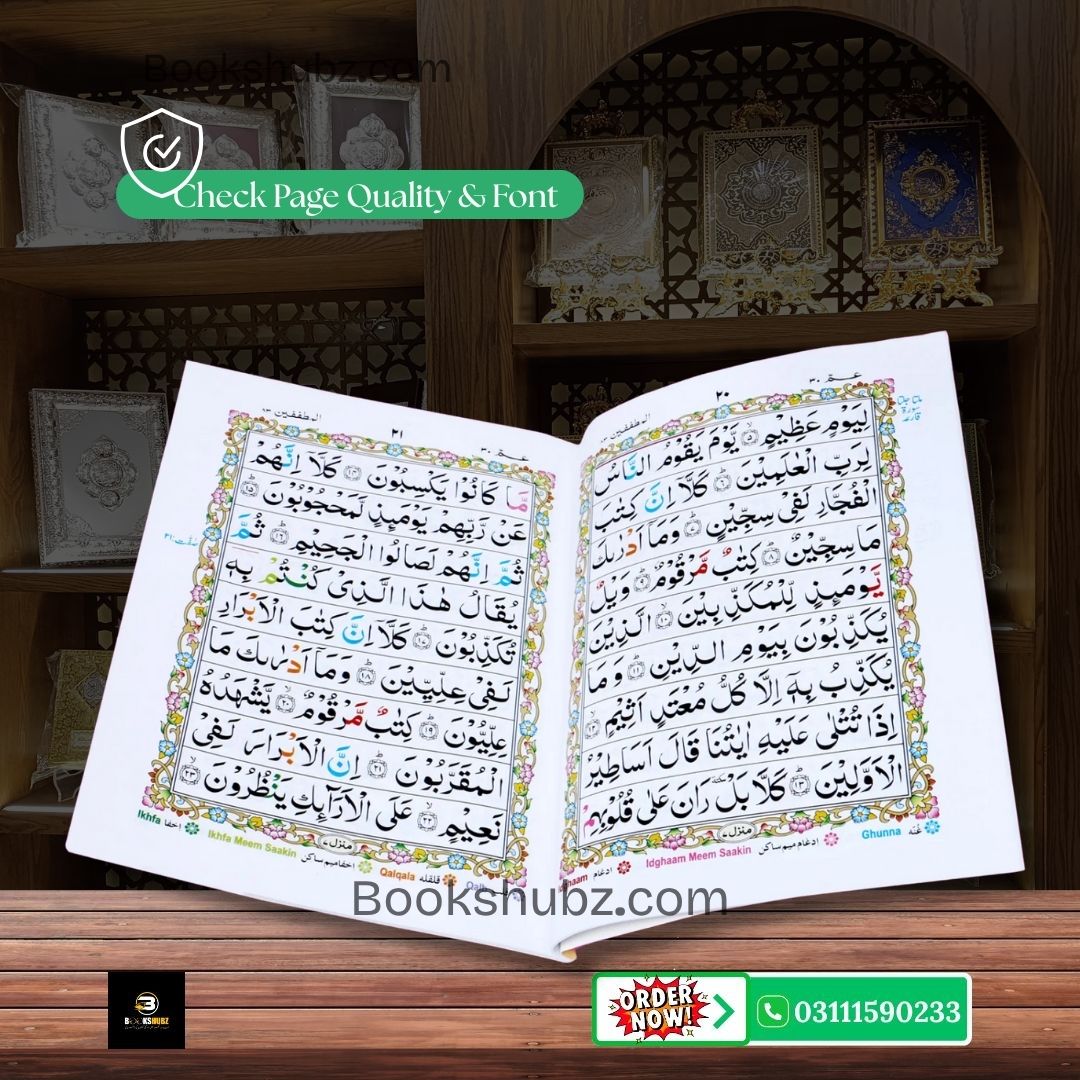 Bookshubz.com
Check Page Quality & Font
عـمّ ٣٠
٢٠
المطففين ٨٣
لِيَوْمٍ عَظِيْمٍ ۙ﴿۵﴾ يَّوْمَ يَقُوْمُ النَّاسُ
لِرَبِّ الْعٰلَمِيْنَ ؕ﴿۶﴾ كَلَّاۤ اِنَّ كِتٰبَ
الْفُجَّارِ لَفِيْ سِجِّيْنٍ ؕ﴿۷﴾ وَمَاۤ اَدْرٰىكَ
مَا سِجِّيْنٌ ؕ﴿۸﴾ كِتٰبٌ مَّرْقُوْمٌ ؕ﴿۹﴾ وَيْلٌ
يَّوْمَىِٕذٍ لِّلْمُكَذِّبِيْنَ ۙ﴿۱۰﴾ الَّذِيْنَ
يُكَذِّبُوْنَ بِيَوْمِ الدِّيْنِ ؕ﴿۱۱﴾ وَمَا
يُكَذِّبُ بِهٖۤ اِلَّا كُلُّ مُعْتَدٍ اَثِيْمٍ ۙ﴿۱۲﴾
اِذَا تُتْلٰى عَلَيْهِ اٰيٰتُنَا قَالَ اَسَاطِيْرُ
الْاَوَّلِيْنَ ؕ﴿۱۳﴾ كَلَّا بَلْ ٚ رَانَ عَلٰى قُلُوْبِهِمْ
منزل ٧
Ghunna غنه
Idghaam Meem Saakin ادغام ميم ساكن
ادغام
المطففين ٨٣
٢١
عـمّ ٣٠
مَّا كَانُوْا يَكْسِبُوْنَ ﴿۱۴﴾ كَلَّاۤ اِنَّهُمْ
عَنْ رَّبِّهِمْ يَوْمَىِٕذٍ لَّمَحْجُوْبُوْنَ ؕ﴿۱۵﴾
ثُمَّ اِنَّهُمْ لَصَالُوا الْجَحِيْمِ ؕ﴿۱۶﴾ ثُمَّ
يُقَالُ هٰذَا الَّذِيْ كُنْتُمْ بِهٖ
تُكَذِّبُوْنَ ؕ﴿۱۷﴾ كَلَّاۤ اِنَّ كِتٰبَ الْاَبْرَارِ
لَفِيْ عِلِّيِّيْنَ ؕ﴿۱۸﴾ وَمَاۤ اَدْرٰىكَ مَا
عِلِّيُّوْنَ ؕ﴿۱۹﴾ كِتٰبٌ مَّرْقُوْمٌ ۙ﴿۲۰﴾ يَّشْهَدُهُ
الْمُقَرَّبُوْنَ ؕ﴿۲۱﴾ اِنَّ الْاَبْرَارَ لَفِيْ
نَعِيْمٍ ۙ﴿۲۲﴾ عَلَى الْاَرَآىِٕكِ يَنْظُرُوْنَ ۙ﴿۲۳﴾
منزل ٧
Ikhfa اخفا
Ikhfa Meem Saakin اخفا ميم ساكن
Qalqala قلقله
Bookshubz.com
BOOKSHUBZ
ORDER NOW!
03111590233